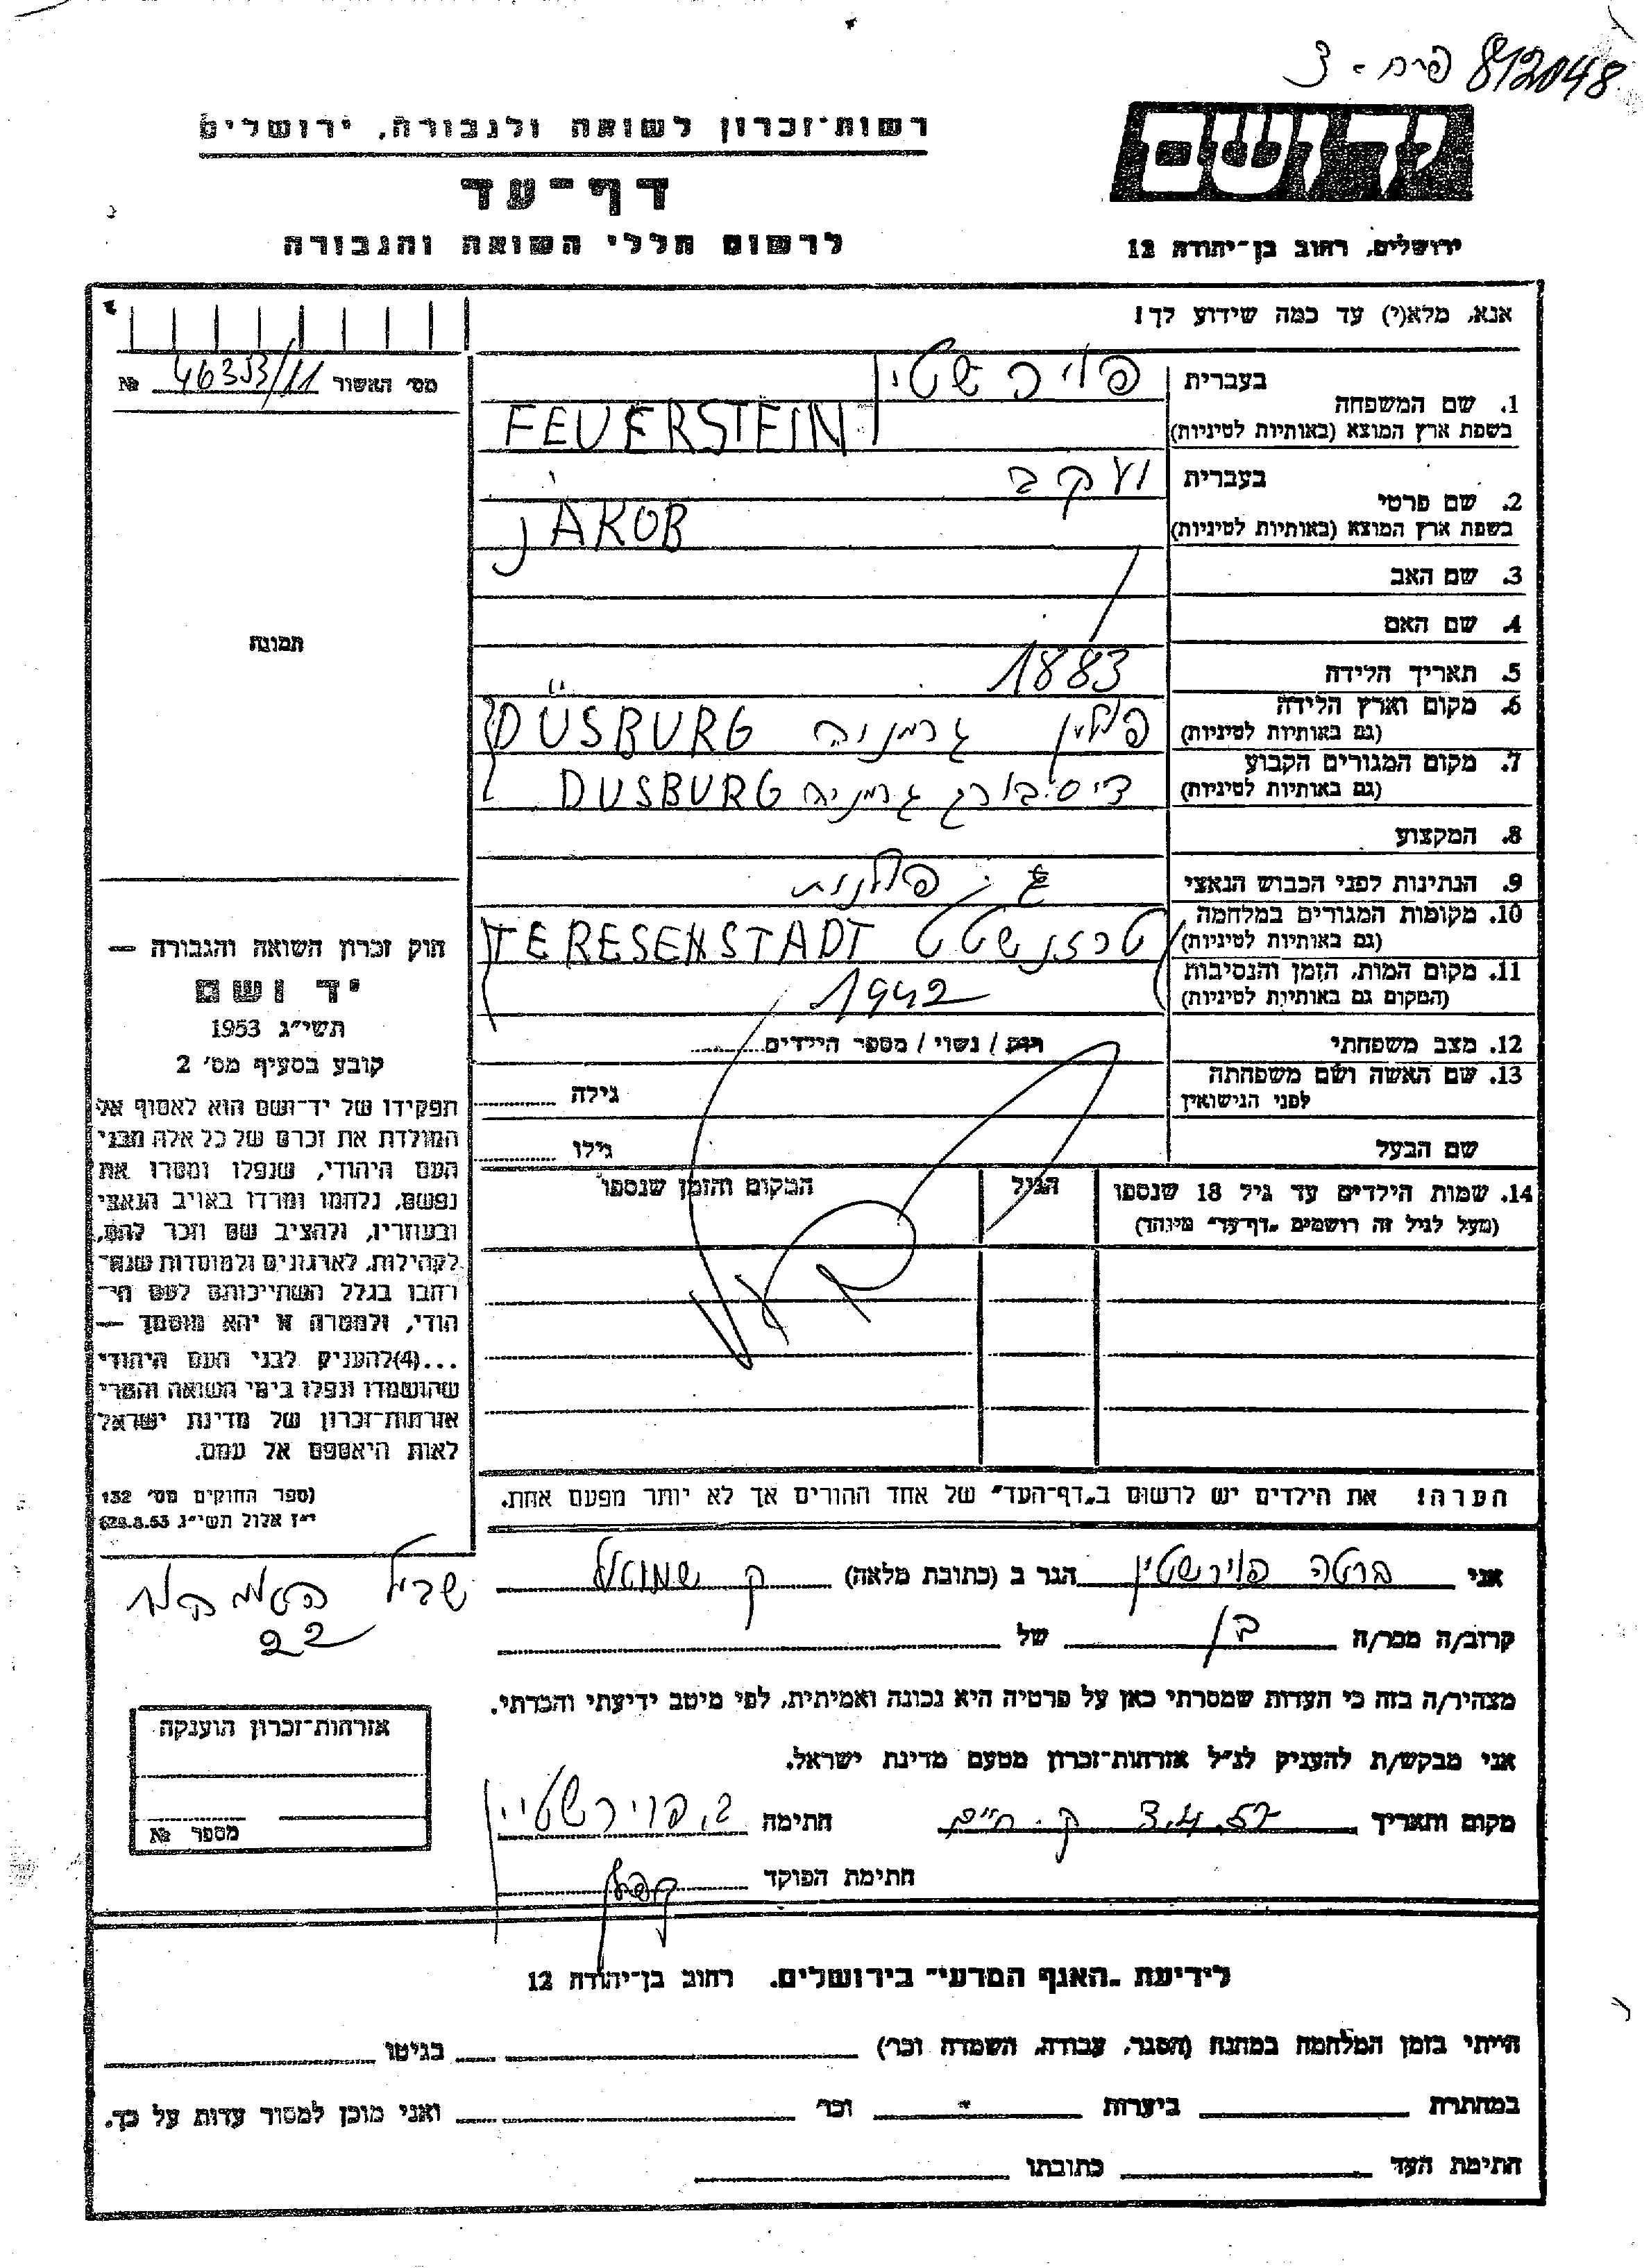 812048 פרח - 3
יד ושם
רשות־זכרון לשואה ולגבורה, ירושלים
דף־עד
לרשום חללי השואה והגבורה
ירושלים, רחוב בן־יהודה 12
אנא, מלא(י) עד כמה שידוע לך!
מס' האשור 46353/11 №
1. שם המשפחה
בעברית פוירשטין
בשפת ארץ המוצא (באותיות לטיניות) FEUERSTEIN
2. שם פרטי
בעברית יעקב
בשפת ארץ המוצא (באותיות לטיניות) JAKOB
3. שם האב
4. שם האם
5. תאריך הלידה 1883
6. מקום וארץ הלידה
(גם באותיות לטיניות) פולין גרמניה DÜSBURG
7. מקום המגורים הקבוע
(גם באותיות לטיניות) דיסבורג גרמניה DUSBURG
8. המקצוע
9. הנתינות לפני הכבוש הנאצי פולנית
10. מקומות המגורים במלחמה
(גם באותיות לטיניות) טרזנשטט TERESENSTADT
11. מקום המות, הזמן והנסיבות
(המקום גם באותיות לטיניות) 1942
12. מצב משפחתי רווק / נשוי / מספר הילדים
13. שם האשה ושם משפחתה
לפני הנישואין גילה
שם הבעל גילו
14. שמות הילדים עד גיל 18 שנספו הגיל המקום והזמן שנספו
(מעל לגיל זה רושמים "דף־עד" מיוחד)
הערה! את הילדים יש לרשום ב"דף־העד" של אחד ההורים אך לא יותר מפעם אחת.
תמונה
חוק זכרון השואה והגבורה —
יד ושם
תשי"ג 1953
קובע בסעיף מס' 2
תפקידו של יד־ושם הוא לאסוף אל
המולדת את זכרם של כל אלה מבני
העם היהודי, שנפלו ומסרו את
נפשם, נלחמו ומרדו באויב הנאצי
ובעוזריו, ולהציב שם וזכר להם,
לקהילות, לארגונים ולמוסדות שנח־
רבו בגלל השתייכותם לעם הי־
הודי, ולמטרה זו יהא מוסמך —
...(4)להעניק לבני העם היהודי
שהושמדו ונפלו בימי השואה והמרי
אזרחות־זכרון של מדינת ישראל
לאות היאספם אל עמם.
(ספר החוקים מס' 132
י"ז אלול תשי"ג 28.8.53)
אני ברטה פוירשטין הגר ב (כתובת מלאה) ק שמואל
שביל 22
קרוב/ה מכר/ה בן של
מצהיר/ה בזה כי העדות שמסרתי כאן על פרטיה היא נכונה ואמיתית, לפי מיטב ידיעתי והכרתי.
אני מבקש/ת להעניק לנ"ל אזרחות־זכרון מטעם מדינת ישראל.
מקום ותאריך 3.4.57 ק. חיים חתימה ב. פוירשטיין
חתימת הפוקד
אזרחות־זכרון הוענקה
מספר №
לידיעת "האגף המדעי" בירושלים. רחוב בן־יהודה 12
הייתי בזמן המלחמה במחנה (הסגר, עבודה, השמדה וכו') בגיטו
במחתרת ביערות וכו' ואני מוכן למסור עדות על כך.
חתימת העד כתובתו